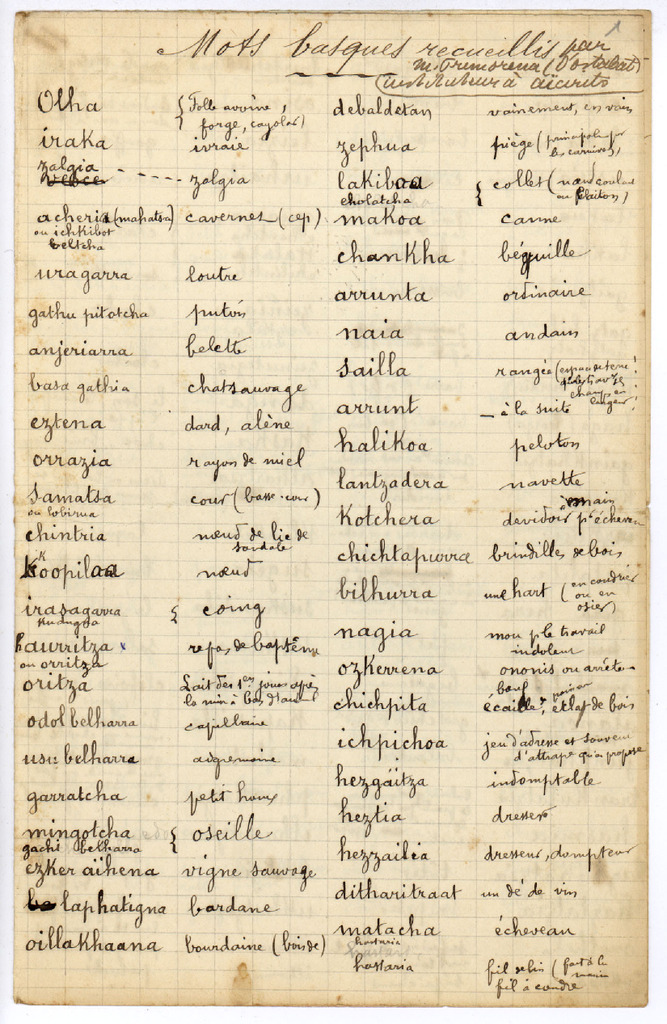 1
Mots basques recueillis par
Mr Irumorena (Ostabat)
instituteur à Aïcirits
Olha { Folle avoine,
forge, cayolar)
iraka ivraie
zalgia ---- zalgia
acheria (mahatsa) cavernes (cep)
ou ichkibot
beltcha
uragarra loutre
gathu pitotcha putois
anjeriarra belette
basa gathia chat sauvage
eztena dard, alène
orrazia rayon de miel
samatsa cour (basse-cour)
ou lobirua
chintria nœud de lie de
sandale
Koopilaa nœud
irasagarra { coing
haurritza repas de baptême
ou orritza
oritza Lait des 1ers jours après
la mise à bas
odol belharra capillaire
usu belharra aigremoine
garratcha petit houx
mingotcha { oseille
gachi belharra
ezker aïhena vigne sauvage
laphatigna bardane
oillakhaana bourdaine (bois de)
debaldetan vainement, en vain
zephua piège (principalt pr
les carnivores)
lakiboa { collet (nœud coulant
cholatcha
makoa canne
chankha béquille
arrunta ordinaire
naia andain
sailla rangée (espace de terre
champ en
largeur)
arrunt - à la suite
halikoa peloton
lantzadera navette
Kotchera dévidoir à main pr écheveau
chichtapurra brindilles de bois
bilhurra une hart (en coudrier
ou en
osier)
nagia mou pr le travail
indolent
ozkerrena ononis ou arrête-
bœuf
chichpita écaille, éclat de bois
ichpichoa jeu d'adresse et souvent
d'attrape qu'on propose
hezgaïtza indomptable
heztia dresser
hezzailia dresseur, dompteur
ditharitraat un dé de vin
matacha écheveau
hastaria
hastaria fil de lin (fait à la
main
fil à coudre